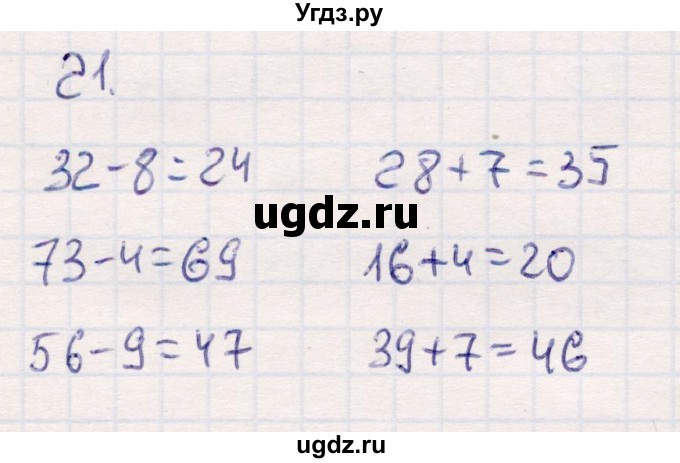 Угдз.ру
21.
32-8=24 28+7=35
ugdz.ru
73-4=69 16+4=20
56-9=47 39+7=46
ugdz.ru